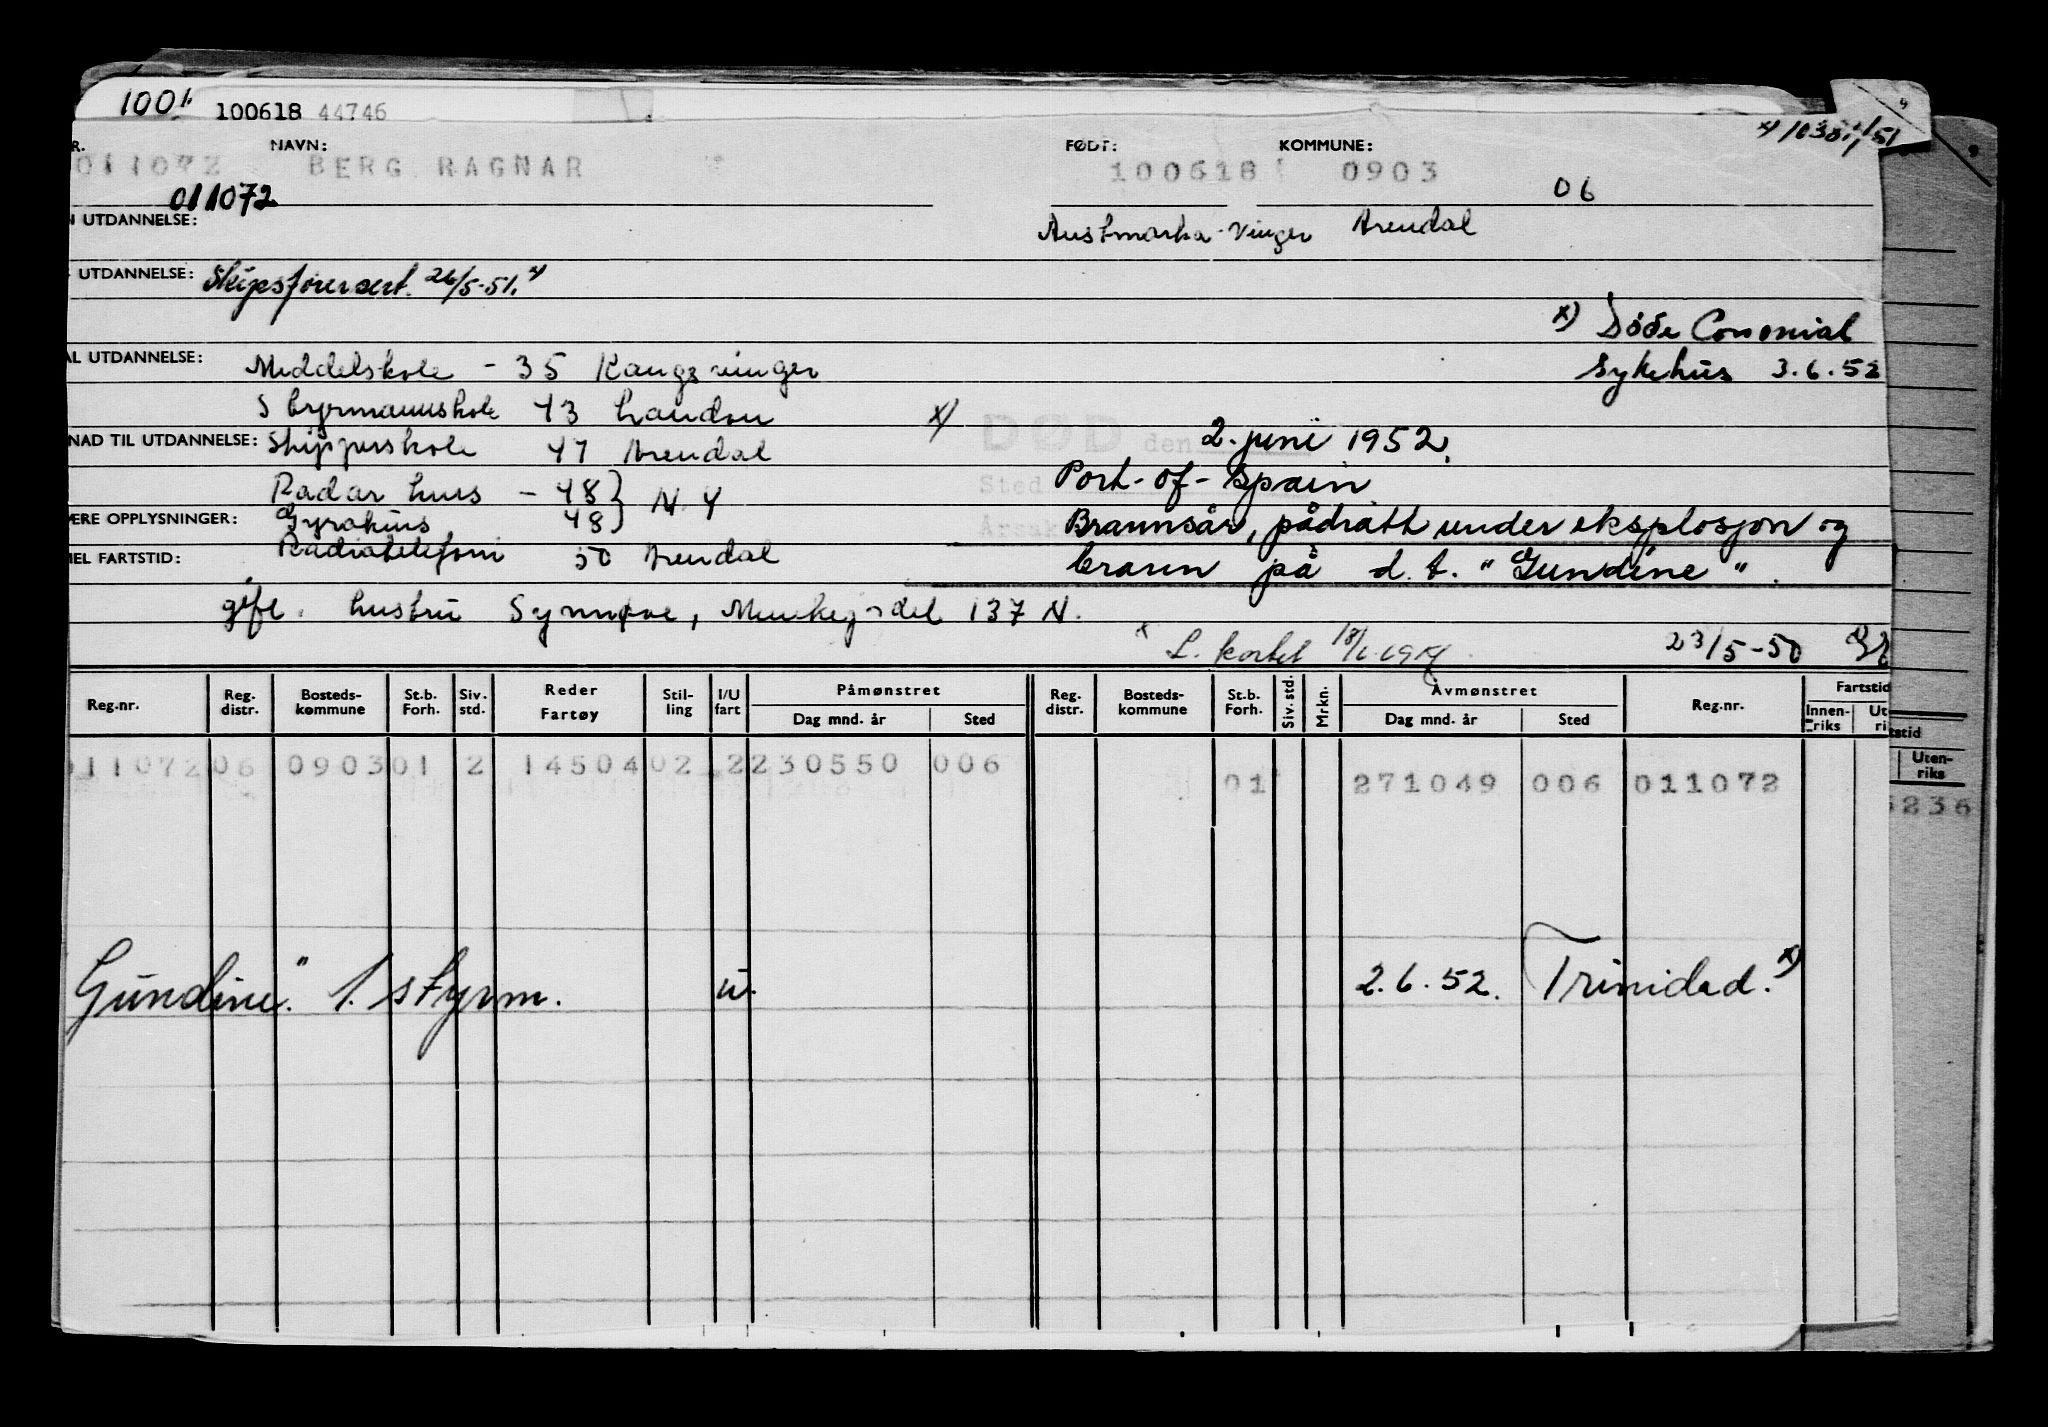 100618 44746
NAVN: FØDT: KOMMUNE:
011072 BERG RAGNAR 100618 0903
011072 06
UTDANNELSE: Austmarka-Vinger Arendal
UTDANNELSE: Skipsførersert. 26/5-51. x)
x) Døde Colonial
Sykehus 3.6.52
AL UTDANNELSE: Middelskole - 35 Kongsvinger
Styrmannskole 43 London
x) DØD den 2. juni 1952.
NAD TIL UTDANNELSE: Skipperskole 47 Arendal
Sted Port-of-Spain
Radar kurs - 48 } N.Y
ÆRE OPPLYSNINGER: Gyrokurs 48
Årsak Brannsår, pådratt under eksplosjon og
EL FARTSTID: Radiotelefoni 50 Arendal
brann på d.t. "Gundine".
gift. hustru Synnøve, 137 N.
23/5-50
Reg.nr. Reg. distr. Bosteds-kommune St.b. Forh. Siv. std. Reder Fartøy Stil-ling I/U fart Påmønstret Dag mnd. år Sted Reg. distr. Bosteds-kommune St.b. Forh. Siv. std. Mrkn. Avmønstret Dag mnd. år Sted Reg.nr. Fartstid Innen-riks Ut ri
tstid
Uten-riks
011072 06 0903 01 2 14504 02 2 230550 006 01 271049 006 011072
5236
Gundine." 1. styrm. u. 2.6.52. Trinidad. x)